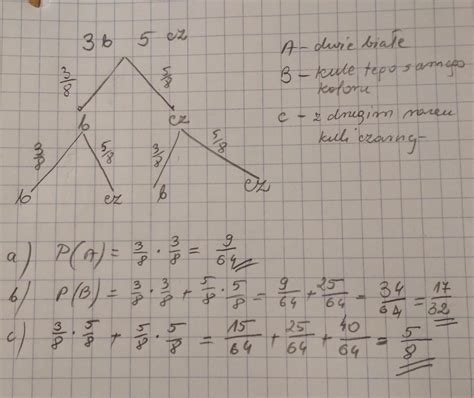 3b 5 cz
3/8 5/8
b cz
3/8 5/8 3/8 5/8
b cz b cz
A - dwie białe
B - kule tego samego
koloru
C - z drugim razem
kuli czarny
a) P(A) = 3/8 · 3/8 = 9/64
b) P(B) = 3/8 · 3/8 + 5/8 · 5/8 = 9/64 + 25/64 = 34/64 = 17/32
c) 3/8 · 5/8 + 5/8 · 5/8 = 15/64 + 25/64 + 40/64 = 5/8